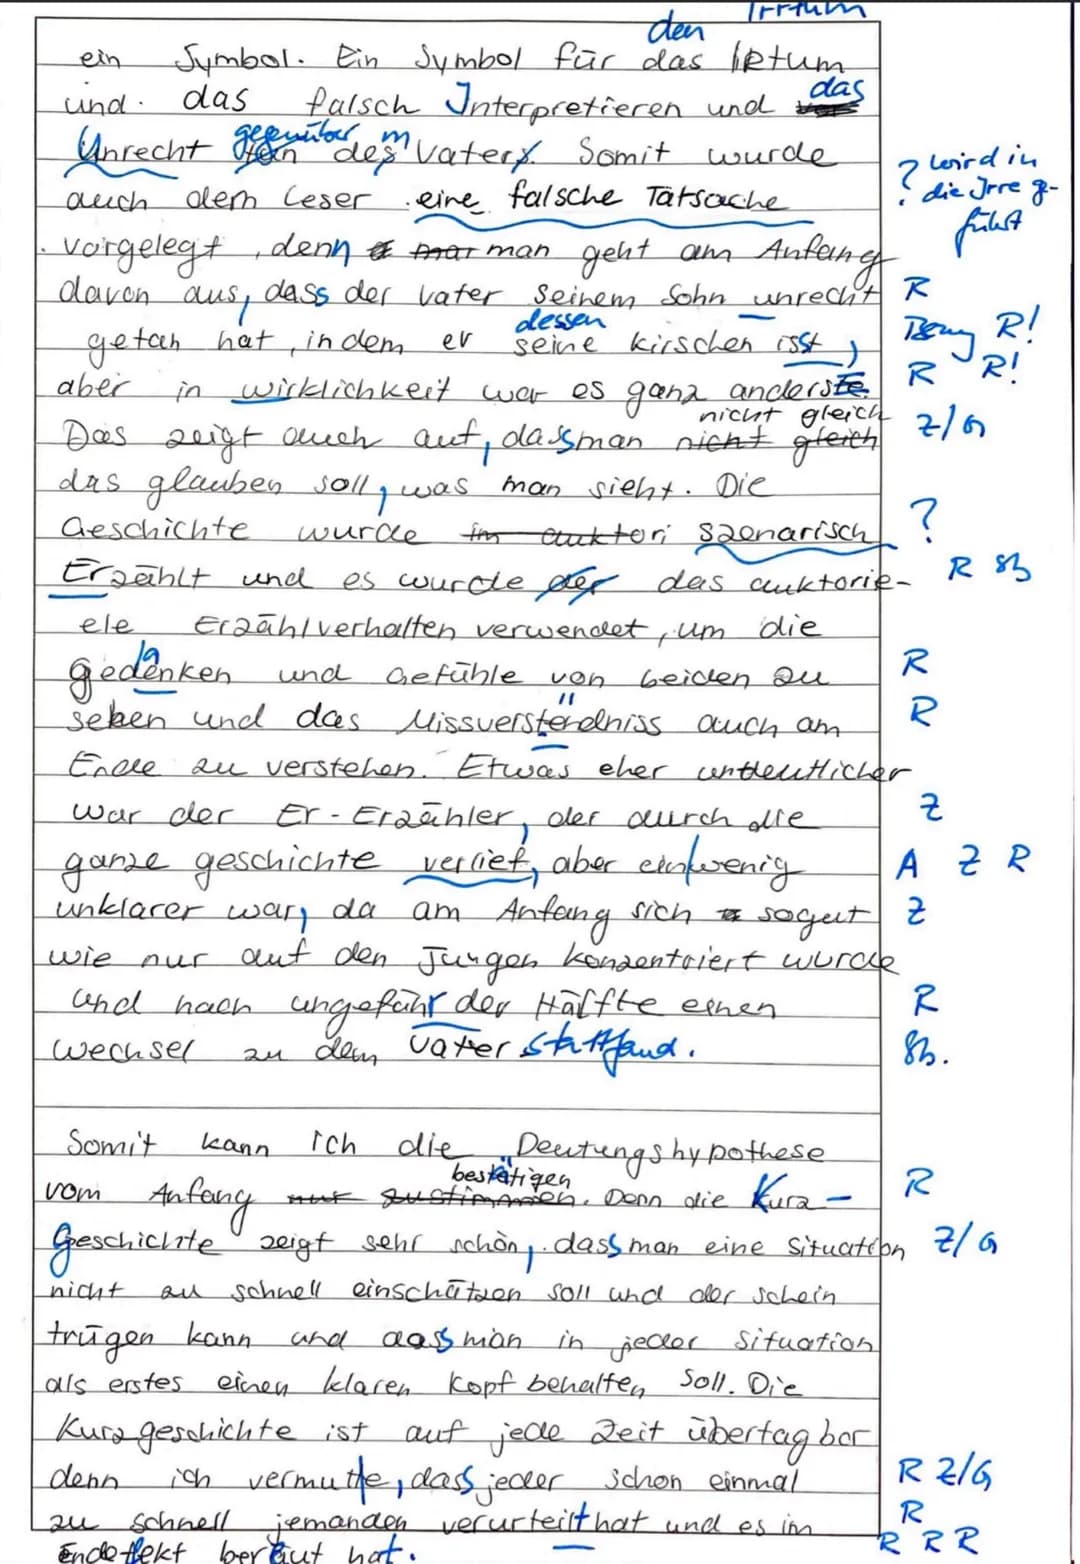 den Irrtum
ein Symbol. Ein Symbol für das Irtum
und das falsch Interpretieren und das
Unrecht gegenüber dem Vater. Somit wurde
auch dem Leser eine falsche Tatsache
? wird in die Irre ge-führt
vorgelegt, denn man geht am Anfang
davon aus, dass der Vater seinem Sohn unrecht R
getan hat, indem er dessen seine kirschen isst, Bezug R!
aber in wirklichkeit war es ganz anderste. R R!
Das zeigt auch auf, dassman nicht gleich nicht gleich Z/G
das glauben soll, was man sieht. Die
Geschichte wurde im auktori szenarisch ?
Erzählt und es wurde der das auktorie- R Sb
ele Erzählverhalten verwendet, um die
gedanken und Gefühle von beiden zu R
sehen und das Missverständniss auch am R
Ende zu verstehen. Etwas eher undeutlicher
war der Er-Erzähler, der durch die Z
ganze geschichte verlief, aber einwenig A Z R
unklarer war, da am Anfang sich sogut Z
wie nur auf den Jungen konzentriert wurde
und nach ungefähr der Hälfte einen R
wechsel zu dem Vater stattfand. Sb.
Somit kann ich die Deutungshypothese
vom Anfang nur zustimmen bestätigen. Denn die Kurz- R
Geschichte zeigt sehr schön, dass man eine Situation Z/G
nicht zu schnell einschätzen soll und der schein
trügen kann und dass man in jeder Situation
als erstes einen klaren Kopf behalten soll. Die
Kurzgeschichte ist auf jede Zeit übertagbar
denn ich vermutte, dass jeder schon einmal R Z/G
zu schnell jemanden verurteilt hat und es im R
Endeffekt bereut hat. R R R